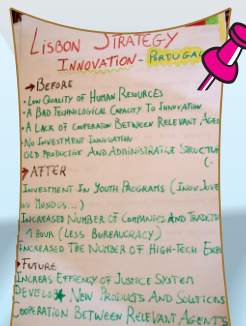 LISBON STRATEGY
INNOVATION - PORTUGAL
→ BEFORE
• LOW QUALITY OF HUMAN RESOURCES
• A BAD TECHNOLOGICAL CAPACITY TO INNOVATION
• A LACK OF COOPERATION BETWEEN RELEVANT AGE
• NO INVESTMENT INNOVATION
OLD PRODUCTIVE AND ADMINISTRATIVE STRUCTUR
→ AFTER
INVESTMENT IN YOUTH PROGRAMS (INOV JOVE
MUNDUS ...)
INCREASED NUMBER OF COMPANIES AND
1 HOUR (LESS BUREAUCRACY)
INCREASED THE NUMBER OF HIGH-TECH EXP
→ FUTURE
INCREAS EFFIENCY OF JUSTICE SYSTEM
DEVELOP NEW PRODUCTS AND SOLUTIONS
COOPERATION BETWEEN RELEVANT AGENT'S